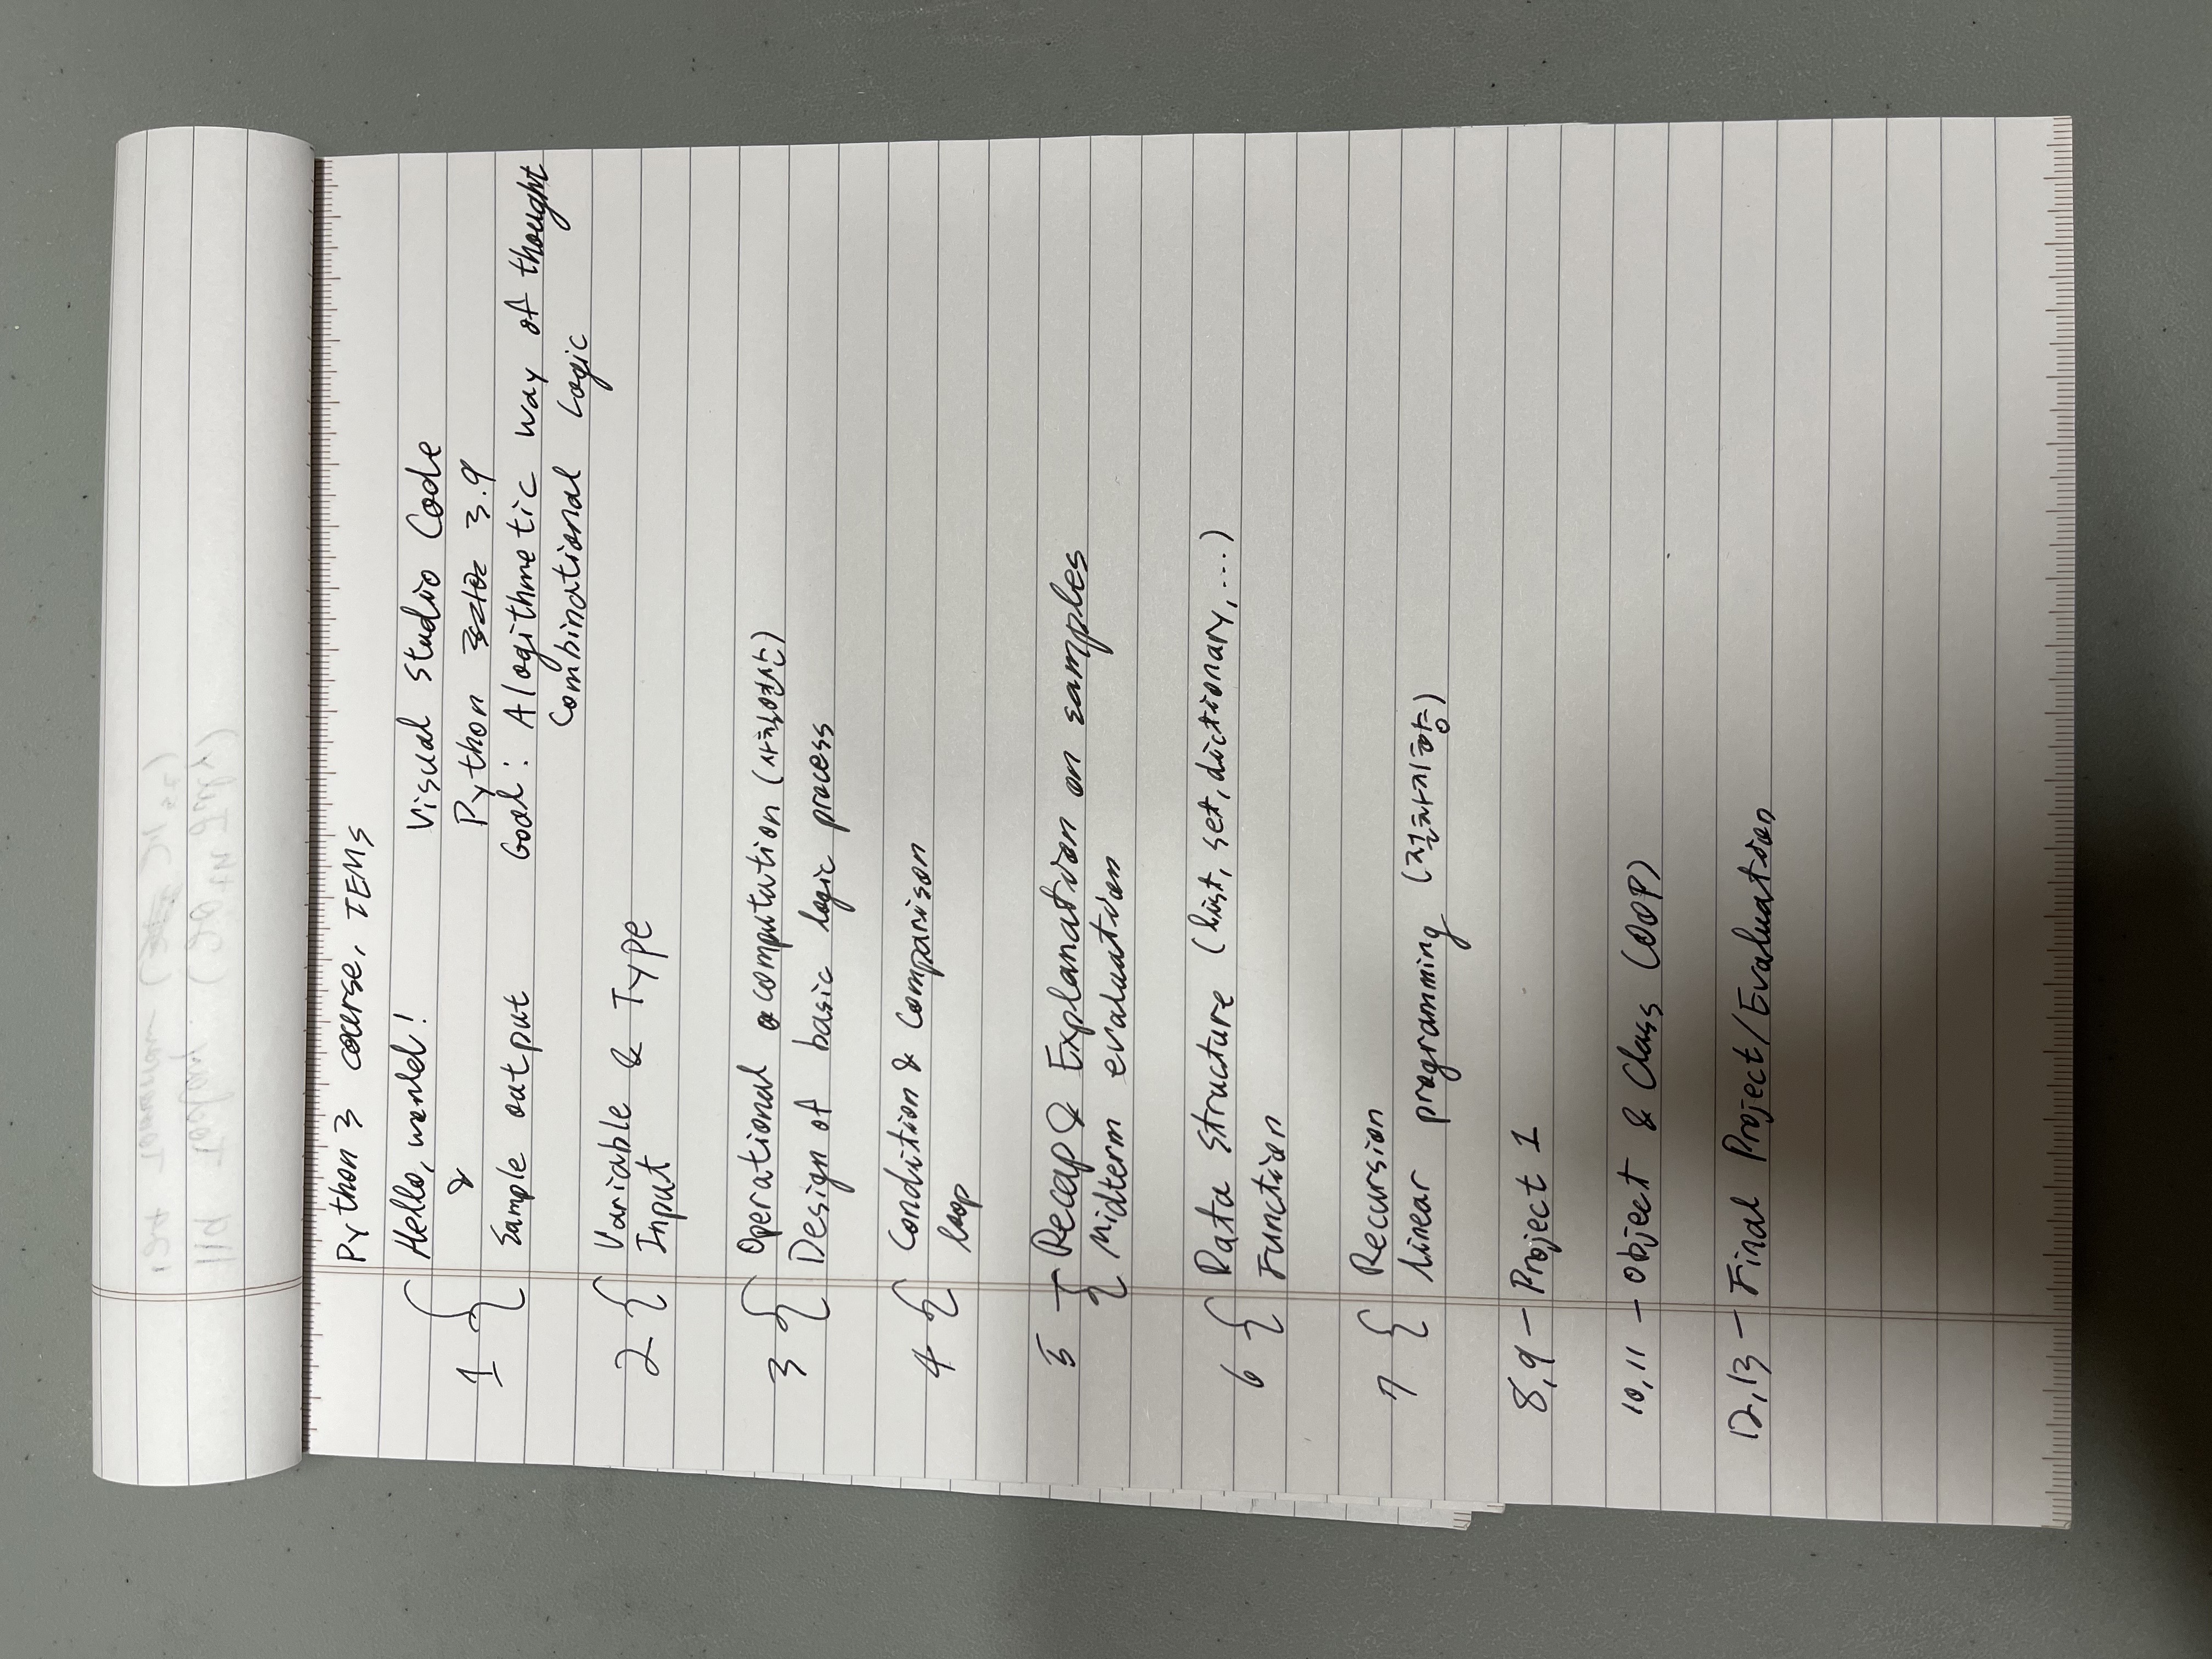 Python 3 course, IEMS
Hello, world! Visual Studio Code
&
1 Python 3.9
Sample output Goal: Alogithmetic way of thought
Combinational Logic
2 Variable & Type
Input
3 Operational computation (사칙연산)
Design of basic logic process
4 Condition & Comparison
loop
5 Recap & Explanation on samples
Midterm evaluation
6 Data structure (list, set, dictionary, ...)
Function
7 Recursion
linear programming (절차지향)
8,9 - Project 1
10,11 - Object & Class (OOP)
12,13 - Final Project/Evaluation